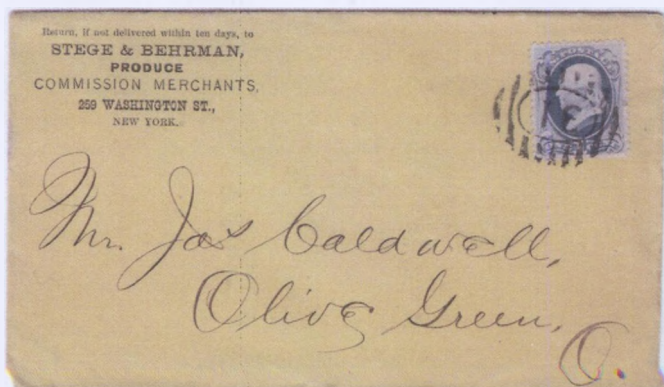 Return, if not delivered within ten days, to
STEGE & BEHRMAN,
PRODUCE
COMMISSION MERCHANTS,
259 WASHINGTON ST.,
NEW YORK.
Mr. Jas Caldwell,
Olive Green,
O.